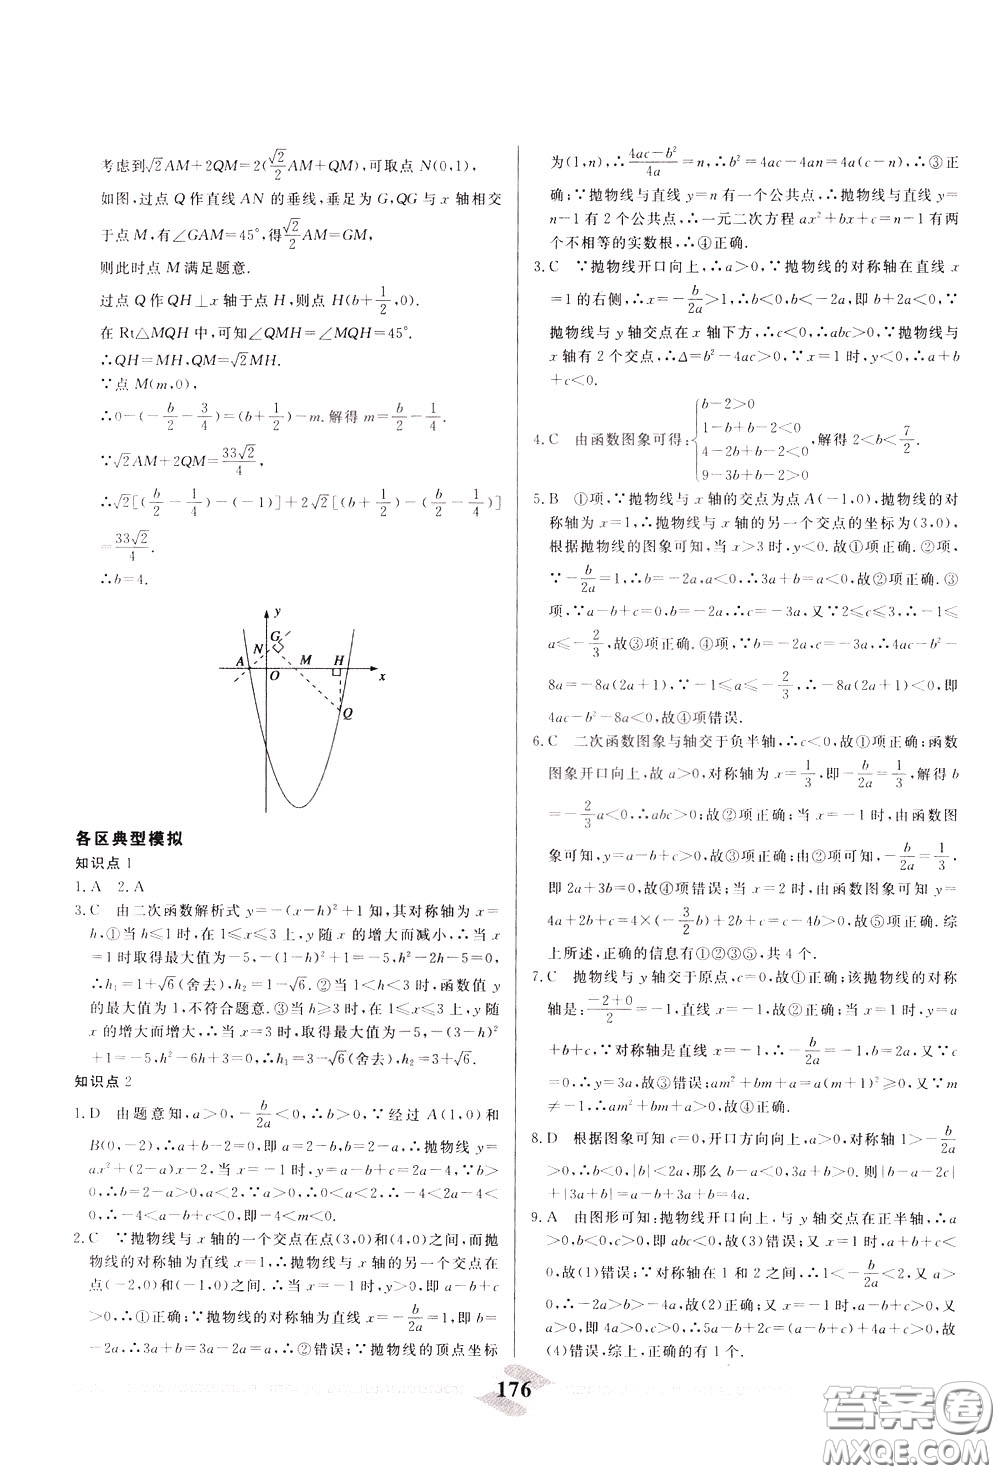 考虑到√2AM+2QM=2(√2/2AM+QM),可取点 N(0,1),
如图,过点 Q 作直线 AN 的垂线,垂足为 G,QG 与 x 轴相交
于点 M,有∠GAM=45°,得√2/2AM=GM,
则此时点 M 满足题意.
过点 Q 作 QH⊥x 轴于点 H,则点 H(b+1/2,0).
在 Rt△MQH 中,可知∠QMH=∠MQH=45°.
∴QH=MH,QM=√2MH.
∵点 M(m,0),
∴0-(-b/2-3/4)=(b+1/2)-m.解得 m=b/2-1/4.
∵√2AM+2QM=33√2/4,
∴√2[(b/2-1/4)-(-1)]+2√2[(b+1/2)-(b/2-1/4)]
=33√2/4.
∴b=4.
y
G
N
A
M
H
O
x
Q
各区典型模拟
知识点 1
1.A 2.A
3.C 由二次函数解析式 y=-(x-h)²+1 知,其对称轴为 x=
h,①当 h≤1 时,在 1≤x≤3 上,y 随 x 的增大而减小,∴当 x
=1 时取得最大值为-5,-(1-h)²+1=-5,h²-2h-5=0,
∴h₁=1+√6(舍去),h₂=1-√6.②当 1<h<3 时,函数值 y
的最大值为 1,不符合题意.③当 h≥3 时,在 1≤x≤3 上,y 随
x 的增大而增大,∴当 x=3 时,取得最大值为-5,-(3-h)²
+1=-5,h²-6h+3=0,∴h₁=3-√6(舍去),h₂=3+√6.
知识点 2
1.D 由题意知,a>0,-b/2a<0,∴b>0,∵经过 A(1,0)和
B(0,-2),∴a+b-2=0,即 a=2-b,b=2-a,∴抛物线 y=
ax²+(2-a)x-2.当 x=-1 时,y=a+a-2-2=2a-4,∵b>
0,∴b=2-a>0,∴a<2,∵a>0,∴0<a<2,∴-4<2a-4<
0,即-4<m<0.
2.C ∵抛物线与 x 轴的一个交点在点(3,0)和(4,0)之间,而抛
物线的对称轴为直线 x=1,∴抛物线与 x 轴的另一个交点在
点(-2,0)和(-1,0)之间.∴当 x=-1 时,y>0,即 a-b+c
>0,∴①正确;∵抛物线的对称轴为直线 x=-b/2a=1,即 b=
-2a,∴3a+b=3a-2a=a,∴②错误;∵抛物线的顶点坐标
为(1,n),∴(4ac-b²)/4a=n,∴b²=4ac-4an=4a(c-n),∴③正
确;∵抛物线与直线 y=n 有一个公共点,∴抛物线与直线 y=
n-1 有 2 个公共点,∴一元二次方程 ax²+bx+c=n-1 有两
个不相等的实数根,∴④正确.
3.C ∵抛物线开口向上,∴a>0,∵抛物线的对称轴在直线 x
=1 的右侧,∴x=-b/2a>1,∴b<0,b<-2a,即 b+2a<0,∵
抛物线与 y 轴交点在 x 轴下方,∴c<0,∴abc>0,∵抛物线与
x 轴有 2 个交点,∴Δ=b²-4ac>0,∵x=1 时,y<0,∴a+b
+c<0.
4.C 由函数图象可得:{b-2>0
1-b+b-2<0
4-2b+b-2<0
9-3b+b-2>0,解得 2<b<7/2.
5.B ①项,∵抛物线与 x 轴的交点为点 A(-1,0),抛物线的对
称轴为 x=1,∴抛物线与 x 轴的另一个交点的坐标为(3,0),
根据抛物线的图象可知,当 x>3 时,y<0.故①项正确.②项,
∵-b/2a=1,∴b=-2a,∴3a+b=a<0,故②项正确.③
项,∵a-b+c=0,b=-2a,∴c=-3a,又∵2≤c≤3,∴-1≤
a≤-2/3,故③项正确;④项,∵b=-2a,c=-3a,∴4ac-b²-
8a=-8a(2a+1),∵-1≤a≤-2/3,∴-8a(2a+1)<0,即
4ac-b²-8a<0,故④项错误.
6.C 二次函数图象与轴交于负半轴,∴c<0,故①项正确;函数
图象开口向上,故 a>0,对称轴为 x=1/3,即-b/2a=1/3,解得 b
=-2/3a<0,∴abc>0;故②项正确;当 x=-1 时,由函数图
象可知,y=a-b+c>0;故③项正确;∵对称轴为-b/2a=1/3,
即 2a+3b=0,故④项错误;当 x=2 时,由函数图象可知,y=
4a+2b+c=4×(-3/2b)+2b+c=c-4b>0,故⑤项正确.综
上所述,正确的信息有①②③⑤,共 4 个.
7.C 抛物线与 y 轴交于原点,c=0,故①正确;该抛物线的对称
轴是:(-2+0)/2=-1,直线 x=-1,故②正确;当 x=1 时,y=a
+b+c,∵对称轴是直线 x=-1,∴-b/2a=-1,b=2a,又∵c
=0,∴y=3a,故③错误;am²+bm+a=a(m+1)²≥0,又∵m
≠-1,∴am²+bm+a>0,故④正确.
8.D 根据图象可知 c=0,开口方向向上,a>0,对称轴 1>-b/2a
>0,∴b<0,|b|<2a,那么 b-2a<0,2a+b>0.则|a-b-2c|
+|3a+b|=a-b+3a+b=4a.
9.A 由图形可知:抛物线开口向上,与 y 轴交点在正半轴,∴a
>0,b<0,c>0,即 abc<0,故(3)错误;又 x=1 时,对应的函数